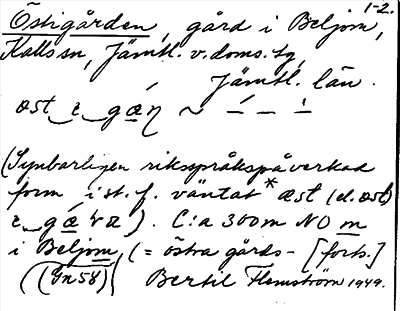 1-2.
Östigården, gård i Beljom,
Kallssn, Jämtl. v. doms. tg,
Jämtl. län.
(Synbarligen riksspråkspåverkad
form i st. f. väntat *æst (el. øst)
C:a 300 m NO m
i Beljom (= östra gårds- [forts.]
(Gn 58) Bertil Flemström 1949.